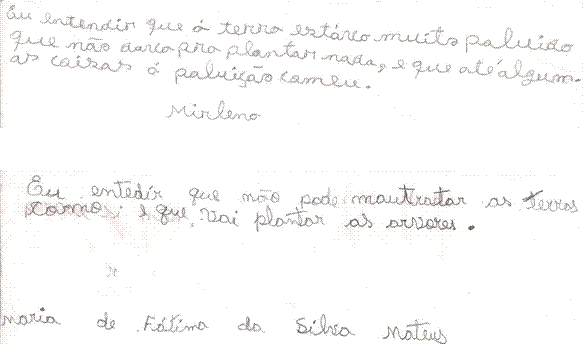 Eu entendir que á terra estárco muito paluido
que não darco pra plantar nada, e que até algum-
as caizas á paluição cameu.
Mirleno
Eu entedir que não pode mautratar as terras
i que vai plantar as arvores.
maria de Fátima da Silva Mateus